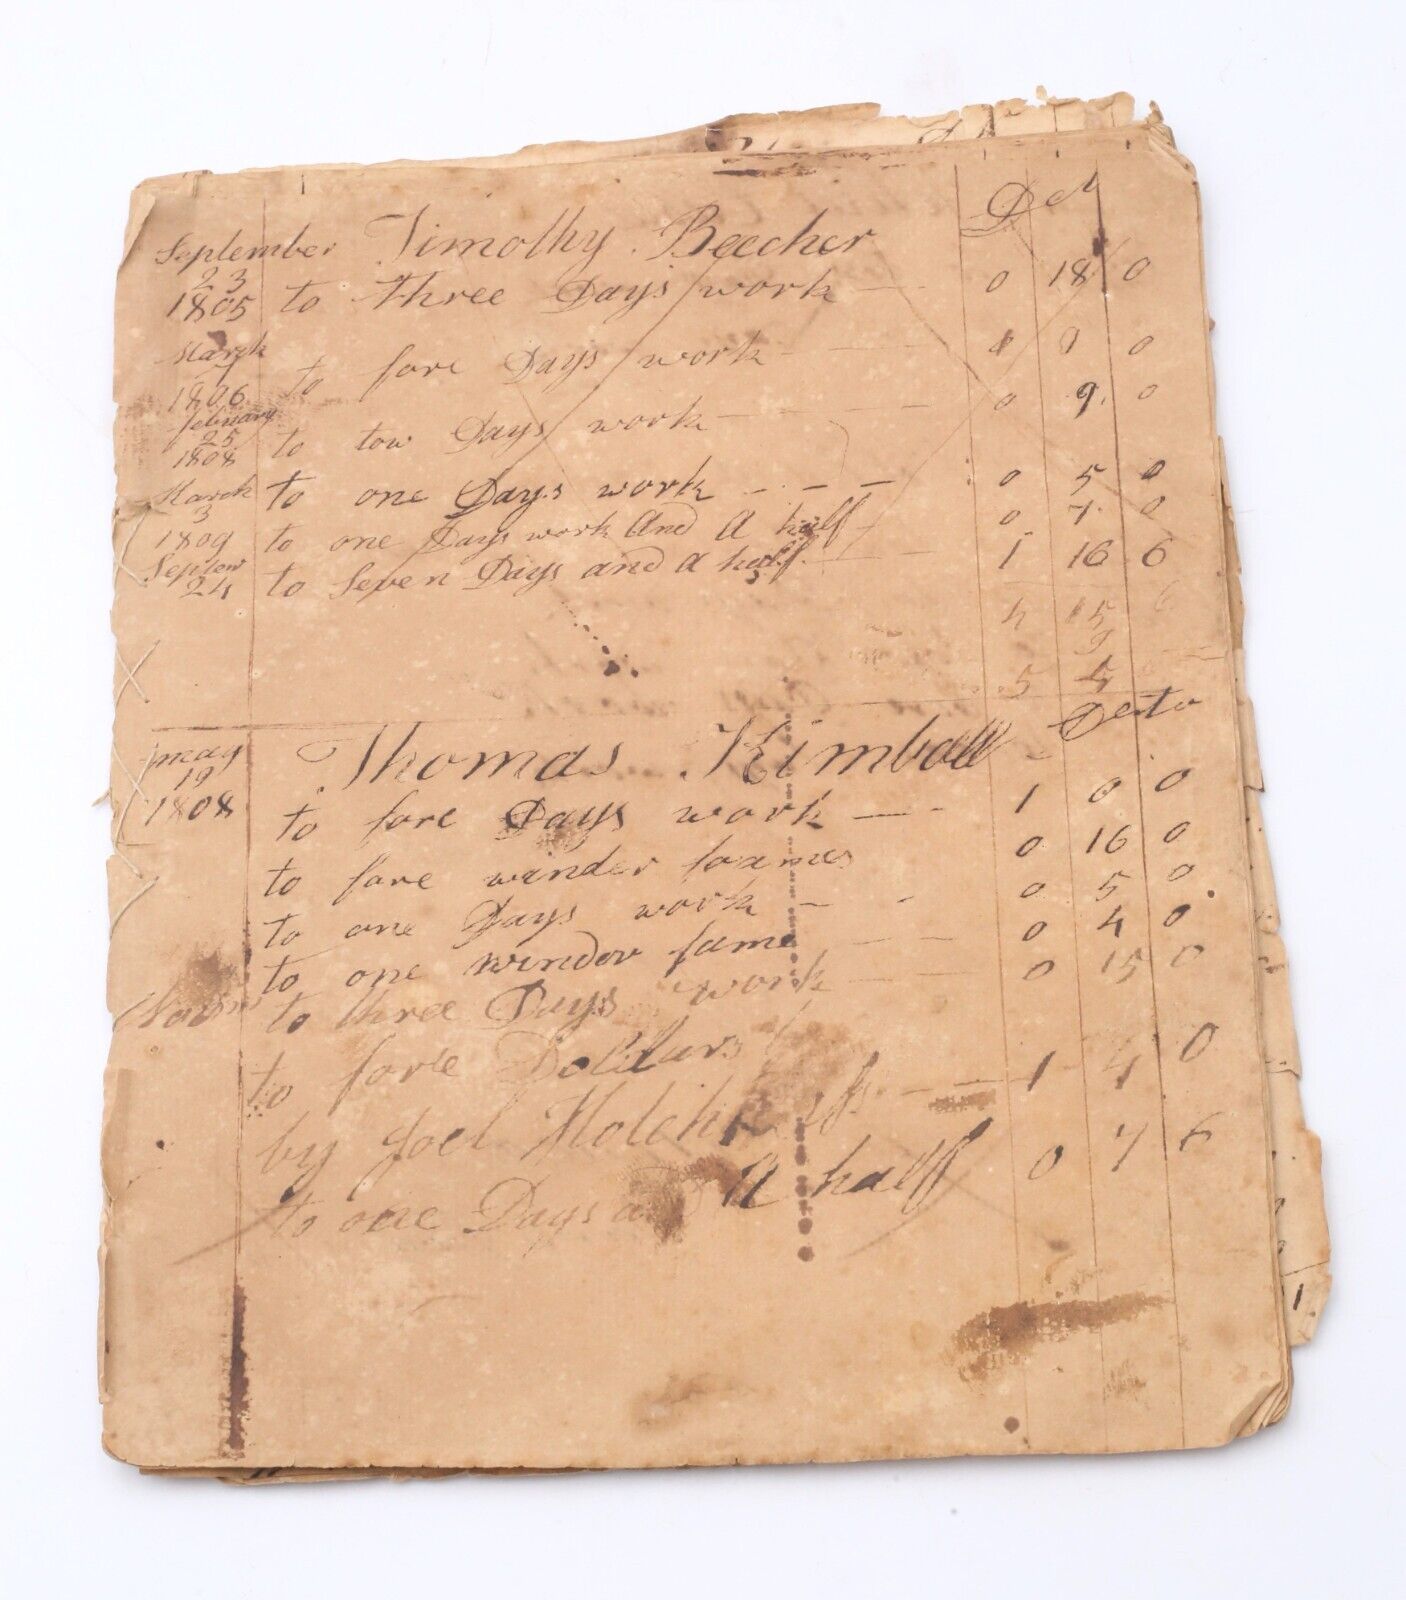 September Timothy Beecher Det
23
1805 to three Days work 0 18 0
March
7
1806 to fore Days work 0
february
25
1808 to tow Days work 0 9 0
March to one Days work 0 5 0
3
1809 to one Days work and a half 0 7 0
Septem
24 to Seven Days and a half 1 16 6
4 15 6
9
5 4
may Thomas Kimball Detto
19
1808 to fore Days work 1 0 0
to fore winder frames 0 16 0
to one Days work 0 5 0
to one window fame 0 4 0
to three Days work 0 15 0
to fore Dolldars 1 4 0
by Joel
to one Days a half 0 7 6